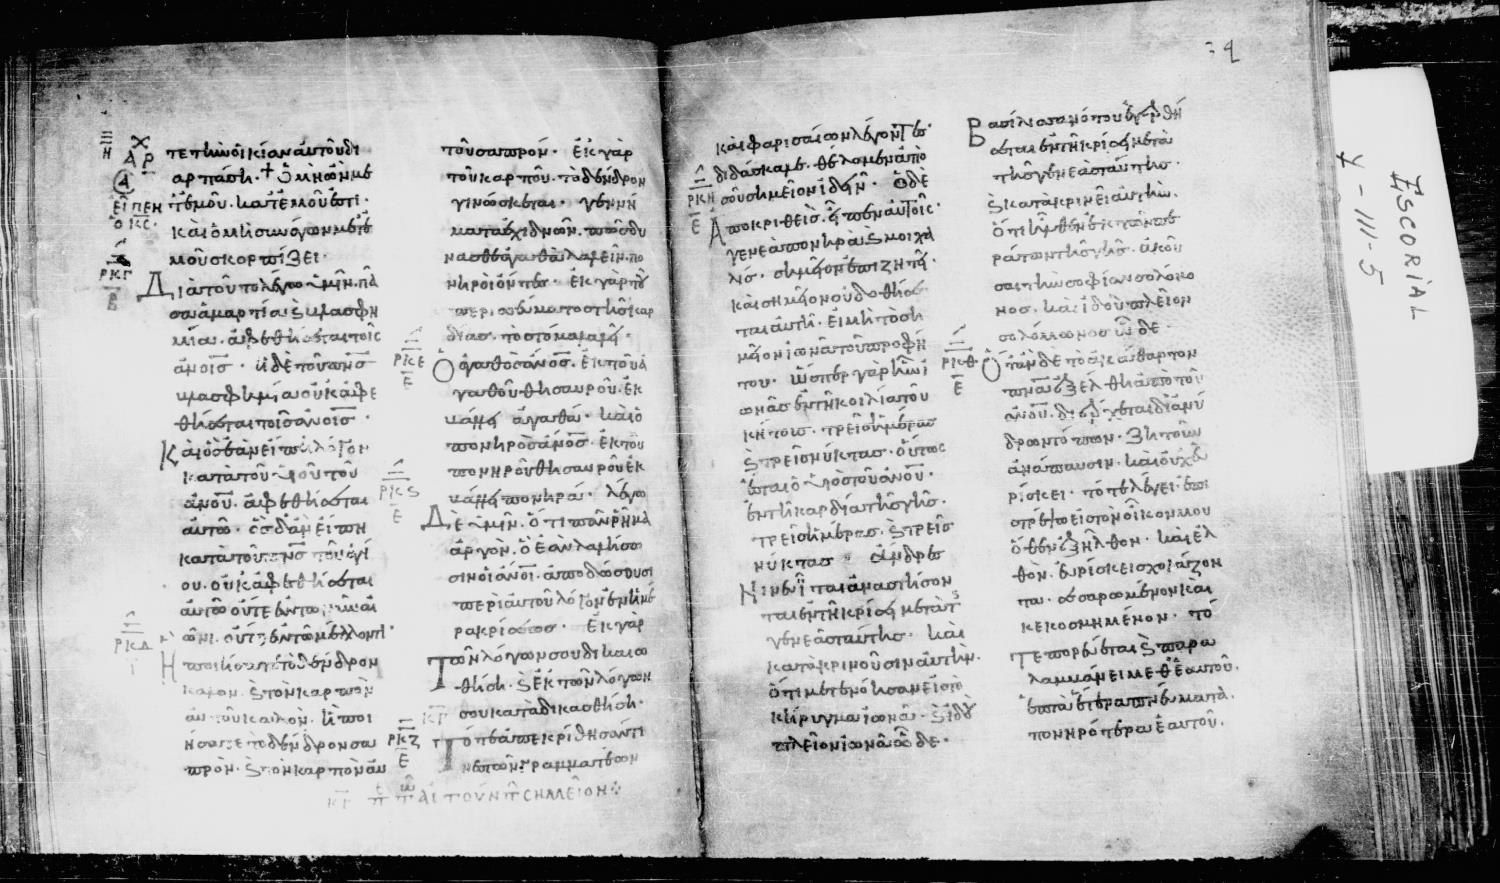 τε τὴν οἰκίαν αὐτοῦ δι
αρπάση. + ὁ μὴ ὢν με
τ ἐμοῦ. κατ ἐμοῦ ἐστι.
καὶ ὁ μὴ συνάγων μετ ἐ
μοῦ σκορπίζει.
Διὰ τοῦτο λέγω ὑμῖν. πᾶ
σα ἁμαρτία ϗ βλασφη
μία. ἀφεθήσεται τοῖς
ἀνοις. ἡ δὲ τοῦ πνς
βλασφημία οὐκ ἀφε
θήσεται τοῖς ἀνοις.
Καὶ ὃς ἐὰν εἴπη λόγον
κατὰ τοῦ υἱοῦ τοῦ
ἀνου. ἀφεθήσεται
αὐτῶ. ὃς δ ἂν εἴπη
κατὰ τοῦ πνς τοῦ ἁγί
ου. οὐκ ἀφεθήσεται
αὐτῶ οὔτε ἐν τῶ νῦν αἰ
ῶνι. οὔτε ἐν τῶ μέλλοντι.
Ἢ ποιήσατε τὸ δένδρον
καλὸν. ϗ τὸν καρπὸν
αὐτοῦ καλὸν. ἢ ποι
ήσατε τὸ δένδρον σα
πρὸν. ϗ τὸν καρπὸν αὐ
τοῦ σαπρόν. ἐκ γὰρ
τοῦ καρποῦ. τὸ δένδρον
γινώσκεται. γεννή
ματα ἐχιδνῶν. πῶς δύ
νασθε ἀγαθὰ λαλεῖν. πο
νηροὶ ὄντες. ἐκ γὰρ τοῦ
περισσεύματος τῆς καρ
δίας. τὸ στόμα λαλεῖ.
Ὁ ἀγαθὸς ἄνος. ἐκ τοῦ ἀ
γαθοῦ θησαυροῦ. ἐκ
βάλλει ἀγαθά. καὶ ὁ
πονηρὸς ἄνος. ἐκ τοῦ
πονηροῦ θησαυροῦ ἐκ
βάλλει πονηρά. λέγω
Δὲ ὑμῖν. ὅτι πᾶν ῥῆμα
ἀργὸν. ὃ ἐὰν λαλήσω
σιν οἱ ἄνοι. ἀποδώσουσι
περὶ αὐτοῦ λόγον ἐν ἡμέ
ρα κρίσεως. ἐκ γὰρ
Τῶν λόγων σου δικαιω
θήση. ϗ ἐκ τῶν λόγων
σου καταδικασθήση.
Τότε ἀπεκρίθησάν τι
νες τῶν γραμματέων
καὶ φαρισαίων λέγοντες.
διδάσκαλε. θέλομεν ἀπὸ
σοῦ σημεῖον ἰδεῖν. ὁ δὲ
Ἀποκριθεὶς. εἶπεν αὐτοῖς.
γενεὰ πονηρὰ ϗ μοιχα
λὶς. σημεῖον ἐπιζητεῖ.
καὶ σημεῖον οὐ δοθήσε
ται αὐτῆ. εἰ μὴ τὸ ση
μεῖον ἰωνᾶ τοῦ προφή
του. ὥσπερ γὰρ ἦν ἰ
ωνᾶς ἐν τῆ κοιλία τοῦ
κήτους. τρεῖς ἡμέρας
ϗ τρεῖς νύκτας. οὕτως
ἔσται ὁ υἱὸς τοῦ ἀνου.
ἐν τῆ καρδία τῆς γῆς.
τρεῖς ἡμέρας. ϗ τρεῖς
νύκτας. ἄνδρες
Νινευῖται ἀναστήσον
ται ἐν τῆ κρίσει μετὰ τ
γενεᾶς ταύτης. καὶ
κατακρινοῦσιν αὐτὴν.
ὅτι μετενόησαν εἰς τὸ
κήρυγμα ἰωνᾶ. ϗ ἰδοὺ
πλεῖον ἰωνᾶ ὧδε.
Βασίλισσα νότου ἐγερθή
σεται ἐν τῆ κρίσει μετὰ
τῆς γενεᾶς ταύτης.
ϗ κατακρινεῖ αὐτήν.
ὅτι ἦλθεν ἐκ τῶν πε
ράτων τῆς γῆς. ἀκοῦ
σαι τὴν σοφίαν σολομῶ
νος. καὶ ἰδοὺ πλεῖον
σολομῶνος ὧδε.
Ὅταν δὲ τὸ ἀκάθαρτον
πνα ἐξέλθη ἀπὸ τοῦ
ἀνου. διέρχεται δι ἀνύ
δρων τόπων. ζητοῦν
ἀνάπαυσιν. καὶ οὐχ εὑ
ρίσκει. τότε λέγει. ἐπι
στρέψω εἰς τὸν οἶκον μου
ὅθεν ἐξῆλθον. καὶ ἐλ
θὸν. εὑρίσκει σχολάζον
τα. σεσαρωμένον καὶ
κεκοσμημένον. τό
Τε πορεύεται ϗ παρα
λαμβάνει μεθ ἑαυτοῦ.
ἑπτὰ ἕτερα πνευματα.
πονηρότερα ἑαυτοῦ.
ΚΓ ΑΙΤΟΥΝΤ ΣΗΜΕΙΟΝ
ESCORIAL
Y-III-5